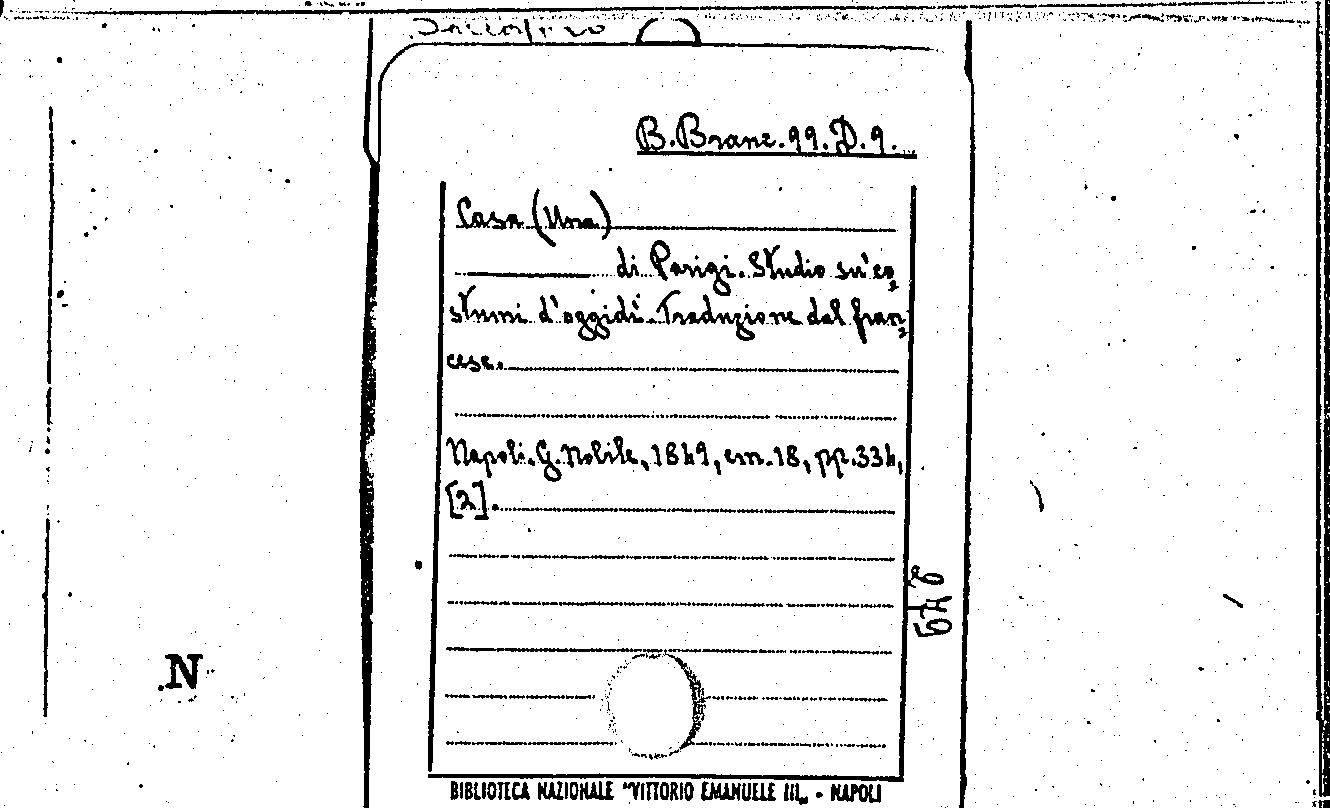 B.Branc.99.D.9.
Casa (Una)
di Parigi. Studio su'co
stumi d'oggidì. Traduzione dal fran
cese.
Napoli. G. Nobile, 1849, cm. 18, pp. 334,
[2].
N
BIBLIOTECA NAZIONALE "VITTORIO EMANUELE III„ - NAPOLI